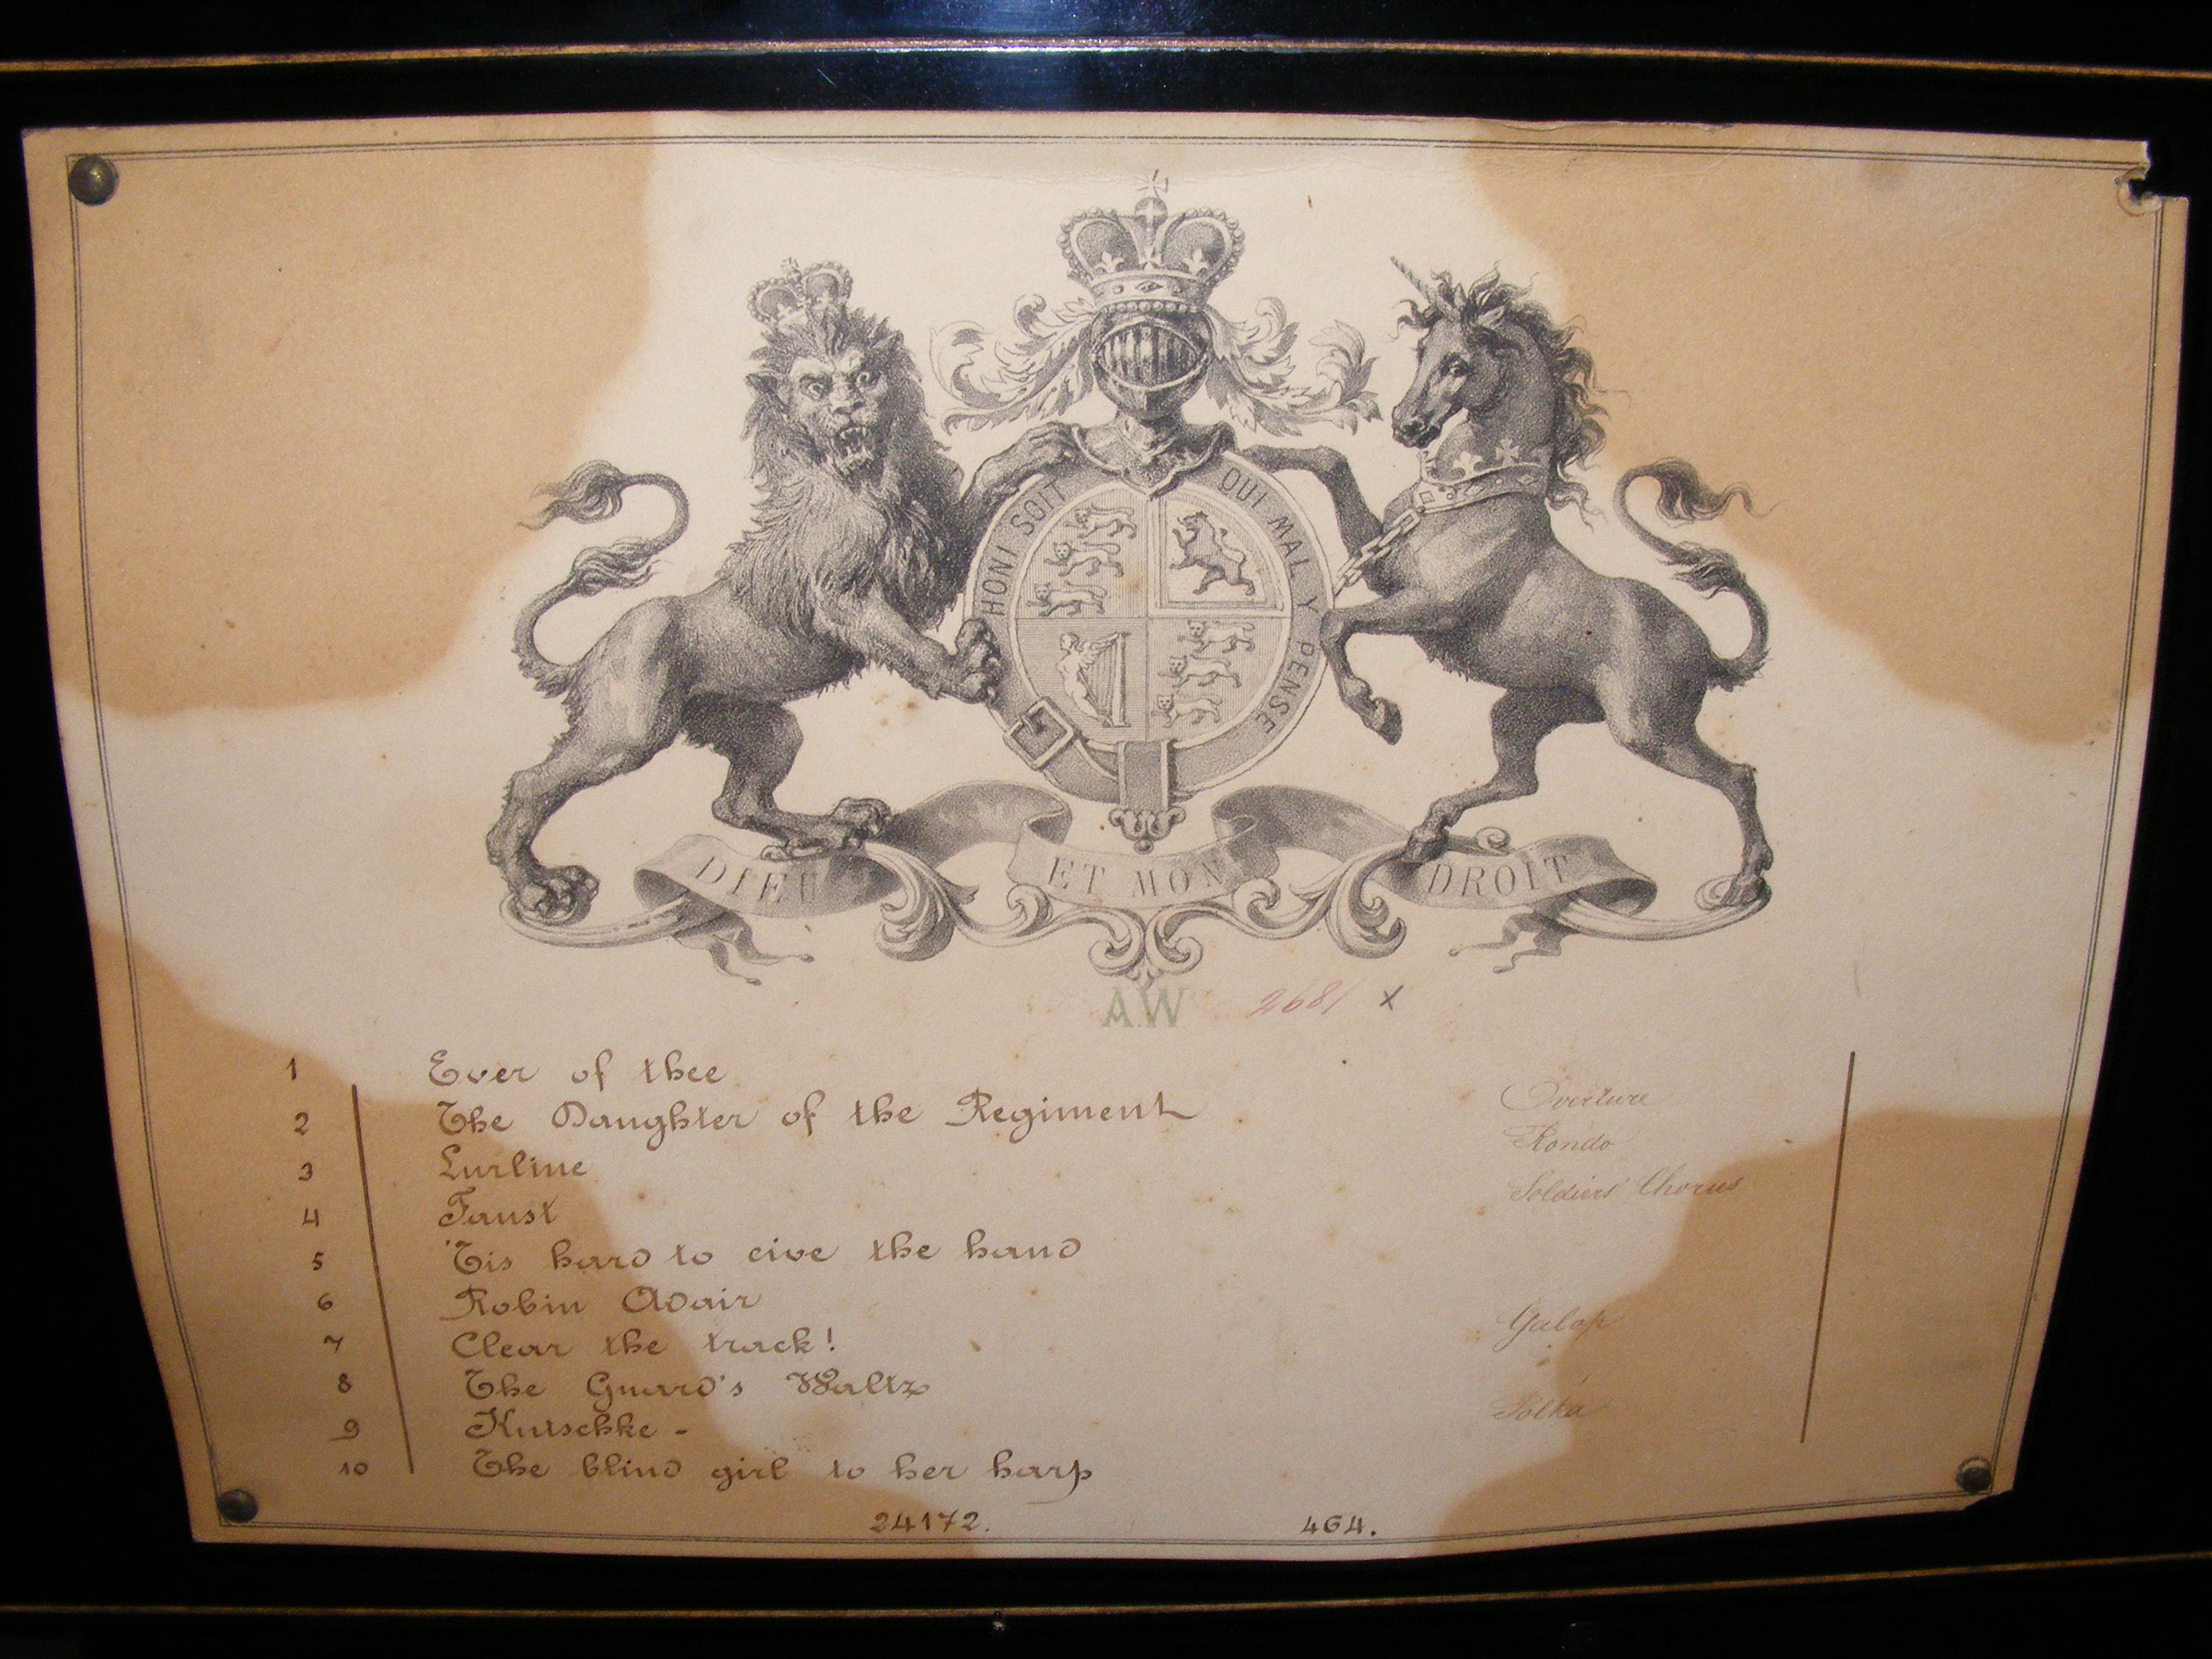 HONI SOIT QUI MAL Y PENSE
DIEU ET MON DROIT
AW 2681 x
1 Ever of thee
2 The Daughter of the Regiment Overture
3 Lurline Rondo
4 Faust Soldiers' Chorus
5 'Tis hard to give the hand
6 Robin Adair
7 Clear the track! Galop
8 The Guard's Waltz
9 Kutschke - Polka
10 The blind girl to her harp
24172. 464.